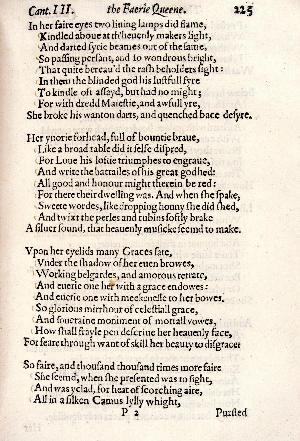 Cant. III. the Faerie Queene. 225
In her faire eyes two liuing lamps did flame,
Kindled aboue at th'heuenly makers light,
And darted fyrie beames out of the same,
So passing persant, and so wondrous bright,
That quite bereau'd the rash beholders sight:
In them the blinded god his lustfull fyre
To kindle oft assayd, but had no might;
For with dredd Maiestie, and awfull yre,
She broke his wanton darts, and quenched bace desyre.
Her yuorie forhead, full of bountie braue,
Like a broad table did it selfe dispred,
For Loue his loftie triumphes to engraue,
And write the battailes of his great godhed:
All good and honour might therein be red:
For there their dwelling was. And when she spake,
Sweete wordes, like dropping honny she did shed,
And twixt the perles and rubins softly brake
A siluer sound, that heauenly musicke seemd to make.
Vpon her eyelids many Graces sate,
Vnder the shadow of her euen browes,
Working belgardes, and amorous retrate,
And euerie one her with a grace endowes:
And euerie one with meekenesse to her bowes.
So glorious mirrhour of celestiall grace,
And soueraine moniment of mortall vowes,
How shall frayle pen descriue her heauenly face,
For feare through want of skill her beauty to disgrace?
So faire, and thousand thousand times more faire
She seemd, when she presented was to sight,
And was yclad, for heat of scorching aire,
All in a silken Camus lylly whight,
P 2 Purfled